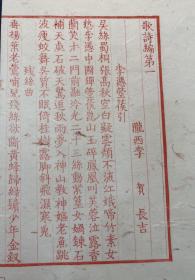 歌詩編第一
隴西李 賀 長吉
李憑箜篌引
吳絲蜀桐張高秋空白凝雲頹不流江娥啼竹素女
愁李憑中國彈箜篌崑山玉碎鳳凰叫芙蓉泣露香
蘭笑十二門前融冷光二十三絲動紫皇女媧鍊石
補天處石破天驚逗秋雨夢入神山教神嫗老魚跳
波瘦蛟舞吳質不眠倚桂樹露脚斜飛濕寒兔
殘絲曲
垂楊葉老鶯哺兒殘絲欲斷黃蜂歸綠鬢少年金釵